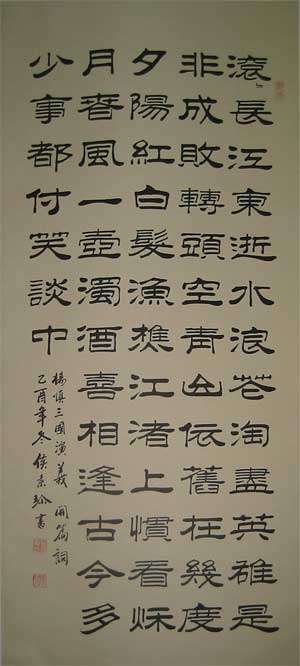 滾〃長江東逝水浪花淘盡英雄是
非成敗轉頭空青山依舊在幾度
夕陽紅白髮漁樵江渚上慣看秋
月春風一壺濁酒喜相逢古今多
少事都付笑談中
楊慎三國演義開篇詞
乙酉年冬侯京書